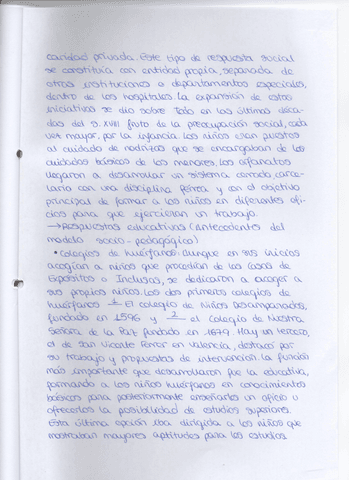 caridad privada. Este tipo de respuesta social
se constituía con entidad propia, separada de
otras instituciones o departamentos especiales,
dentro de los hospitales. La expansión de estas
iniciativas se dio sobre todo en las últimas déca-
das del S. XVIII fruto de la preocupación social, cada
vez mayor, por la infancia. Los niños eran puestos
al cuidado de nodrizas que se encargaban de los
cuidados básicos de los menores. Los orfanatos
llegaron a desarrollar un sistema cerrado, carce-
lario con una disciplina férrea y con el objetivo
principal de formar a los niños en diferentes ofi-
cios para que ejercieran un trabajo.
→ Respuestas educativas (Antecedentes del
modelo socio-pedagógico)
• Colegios de huérfanos. Aunque en sus inicios
acogían a niños que procedían de las Casas de
Expósitos o Inclusas, se dedicaron a acoger a
sus propios niños. Los dos primeros colegios de
huérfanos 1 El colegio de Niños Desamparados,
fundado en 1596 y 2 el colegio de Nuestra
Señora de la Paz fundado en 1679. Hay un tercero,
el de San Vicente Ferrer en Valencia, destacó por
su trabajo y propuestas de intervención. La función
más importante que desarrollaron fue la educativa,
formando a los niños huérfanos en conocimientos
básicos para posteriormente enseñarles un oficio u
ofrecerles la posibilidad de estudios superiores.
Esta última opción iba dirigida a los niños que
mostraban mayores aptitudes para los estudios.